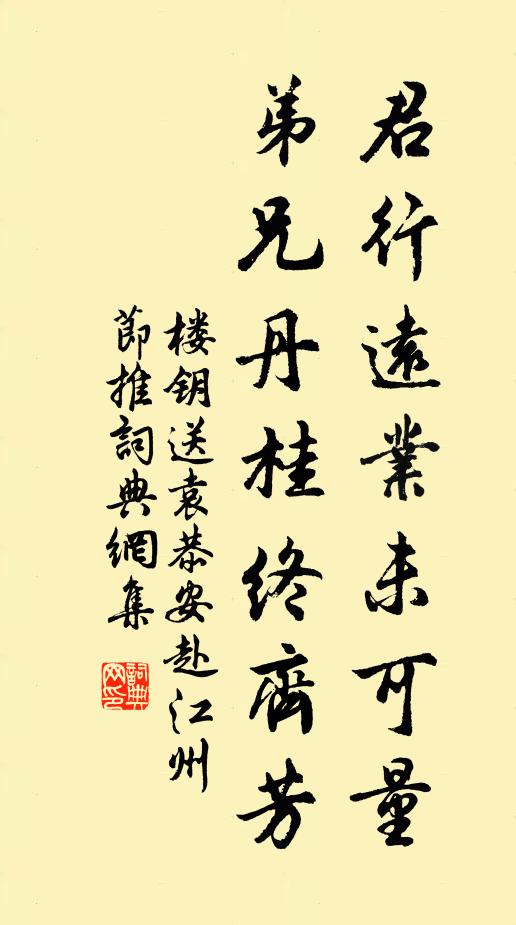 君行遠業未可量
弟兄丹桂終齊芳
楼钥送袁恭安赴江州
節推詞典網集
詞典網印